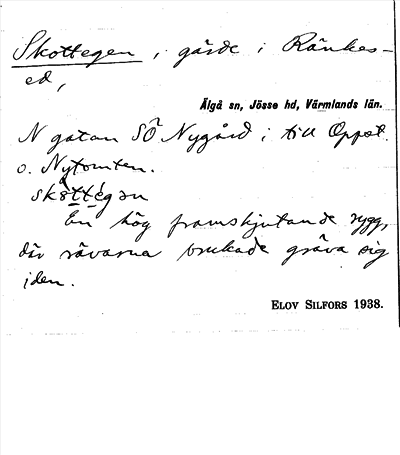 Skottegen, gärde i Ränkes-
ed,
Älgå sn, Jösse hd, Värmlands län.
N gatan SÖ Nygård i till Oppst.
o. Nytomten.
skåttégən
En hög framskjutande rygg,
där rävarna brukade gräva sig
iden.
ELOV SILFORS 1938.